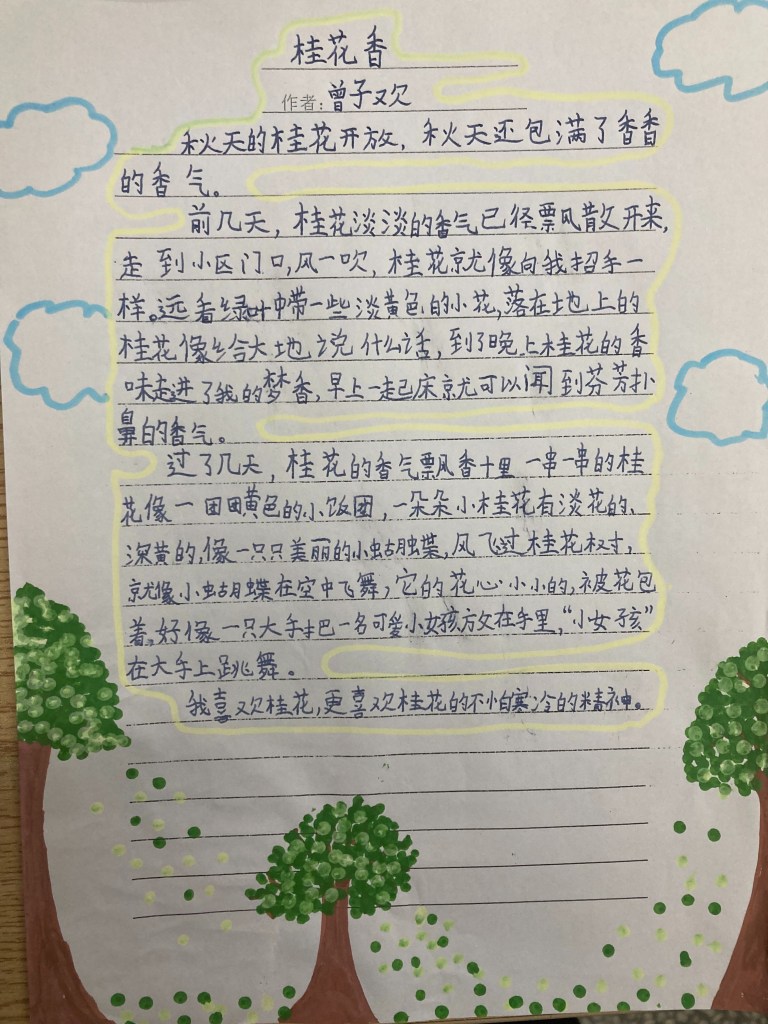 桂花香
作者：曾子欢
秋天的桂花开放，秋天还包满了香香
的香气。
前几天，桂花淡淡的香气已径票风散开来，
走到小区门口，风一吹，桂花就像向我招手一
样。远看绿叶中带一些淡黄色的小花，落在地上的
桂花像给大地说什么话，到了晚上桂花的香
味走进了我的梦香，早上一起床就可以闻到芬芳扑
鼻的香气。
过了几天，桂花的香气飘香十里一串一串的桂
花像一团团黄色的小饭团，一朵朵小桂花有淡花的、
深黄的，像一只只美丽的小蝴蝶，风飞过桂花树，
就像小蝴蝶在空中飞舞，它的花心小小的，被花包
着，好像一只大手把一名可爱小女孩放在手里，“小女孩”
在大手上跳舞。
我喜欢桂花，更喜欢桂花的不怕寒冷的精神。